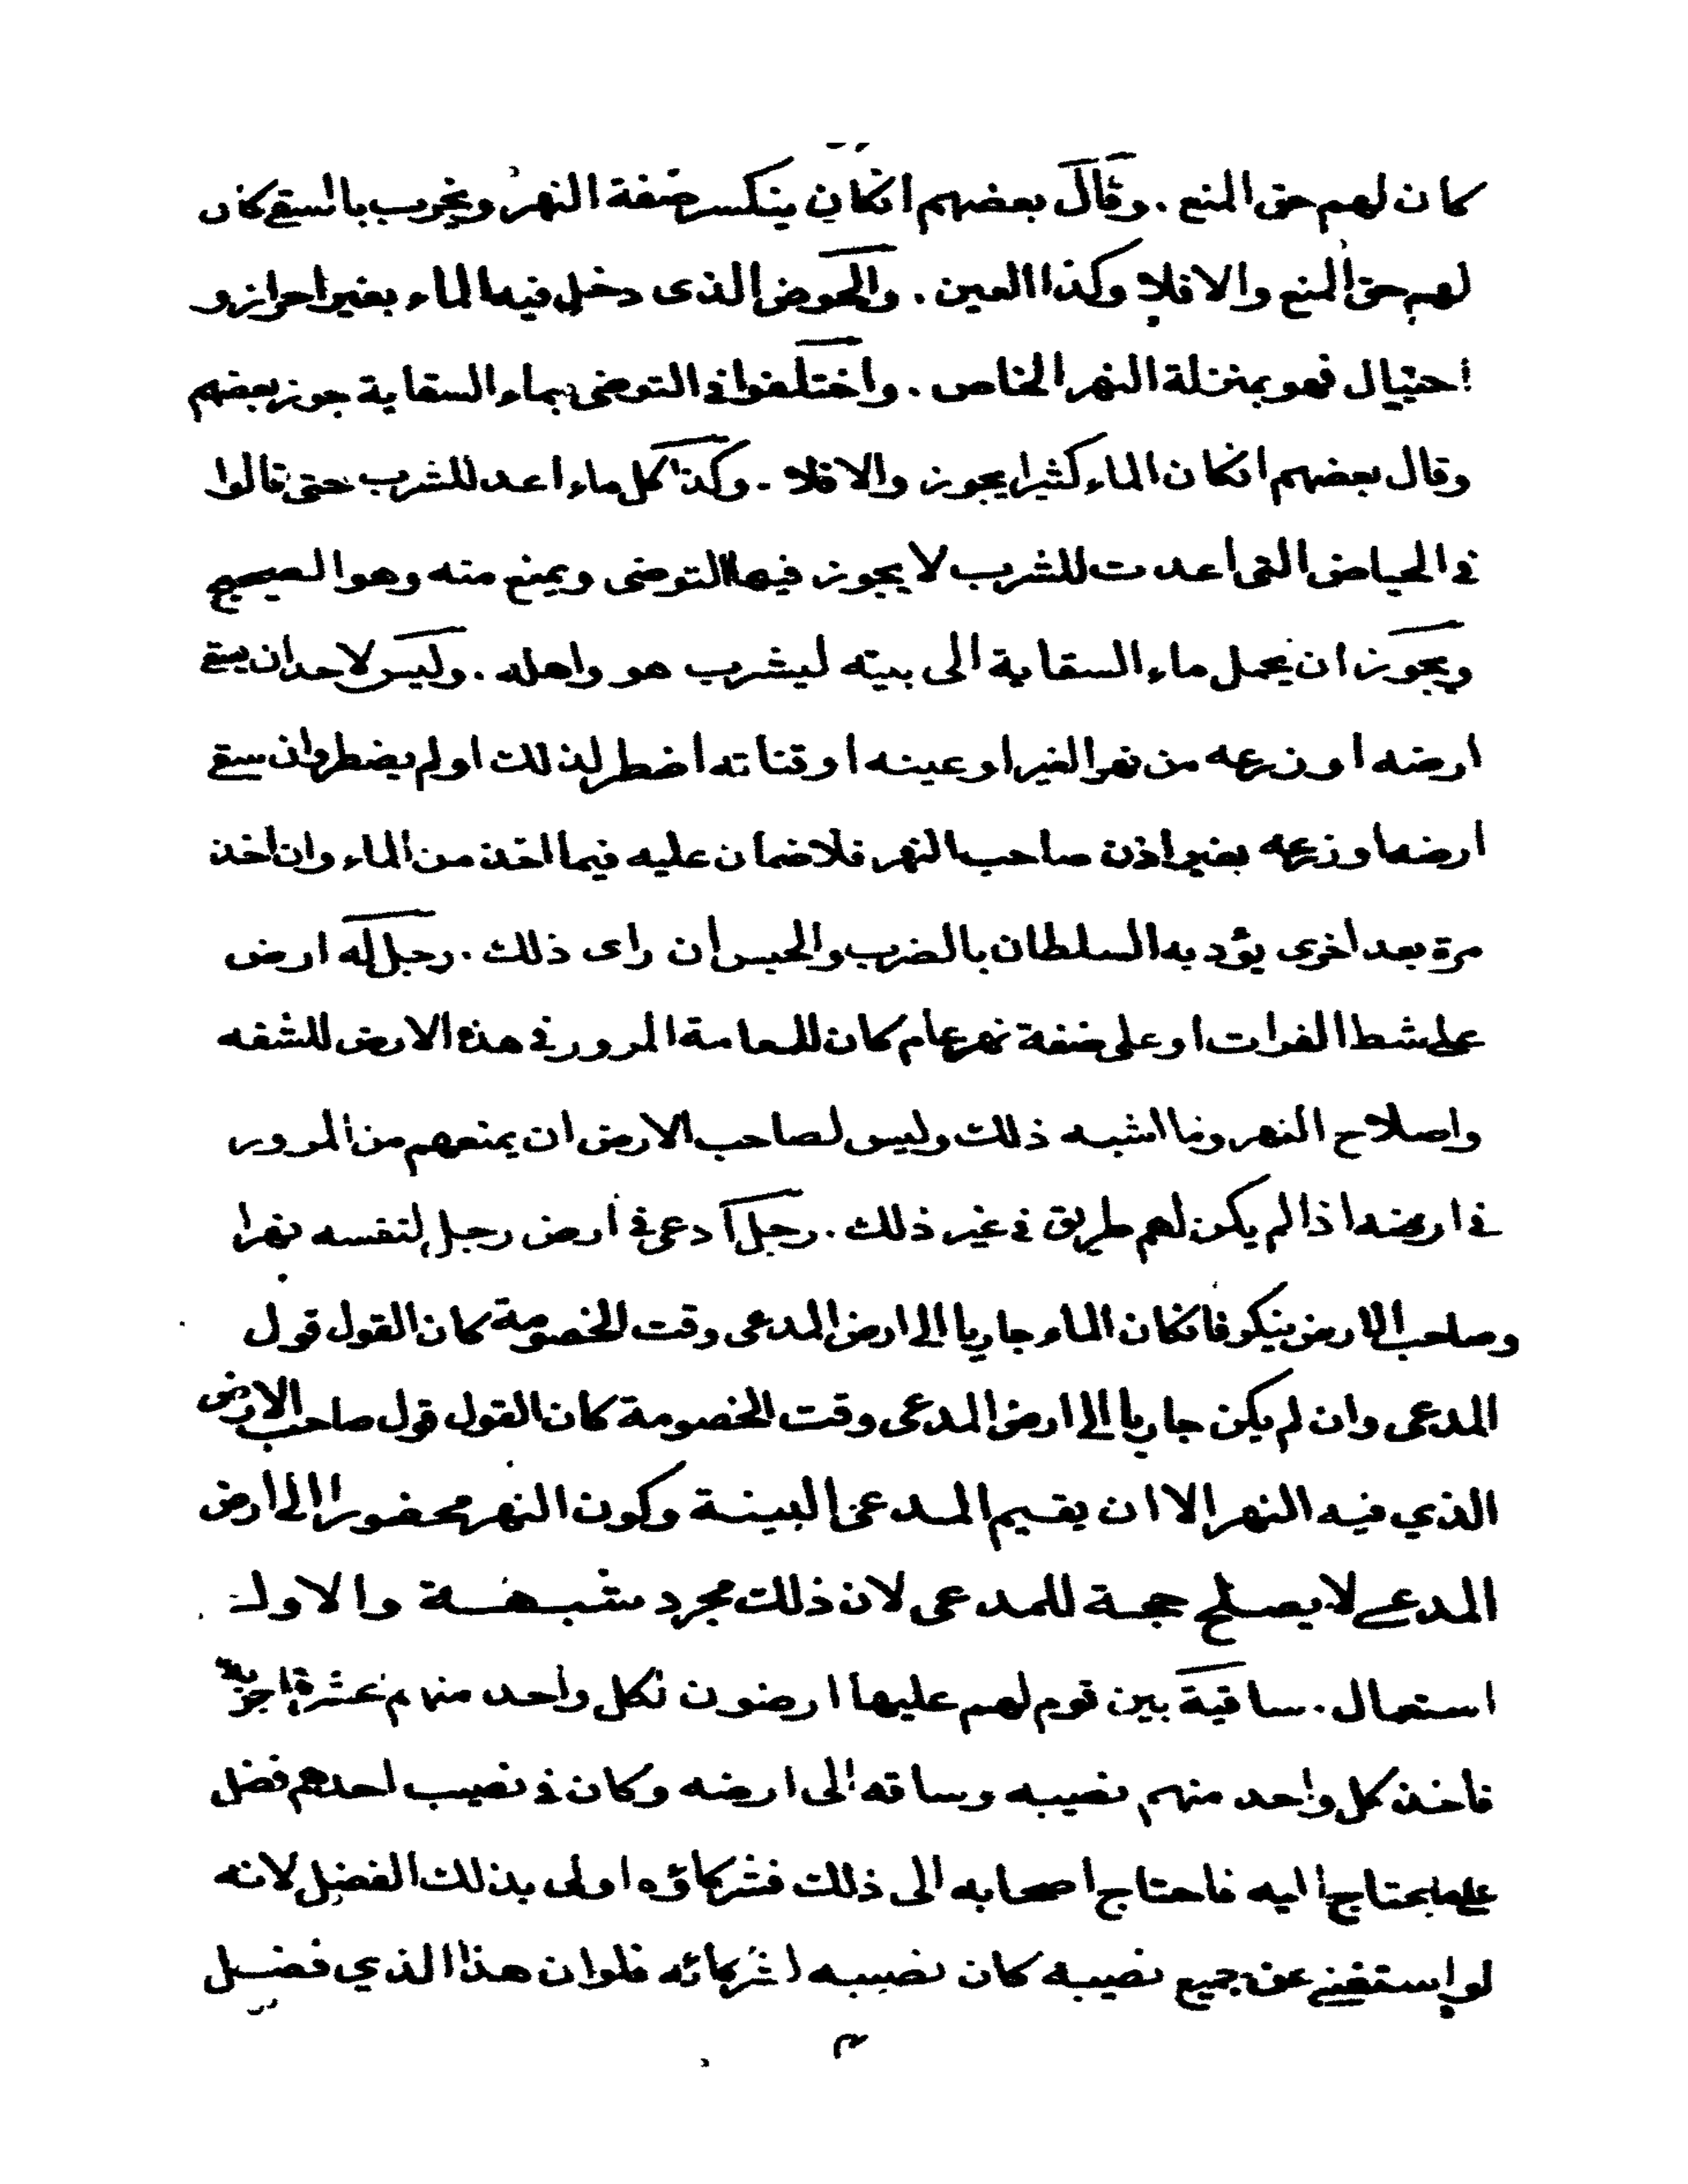 كان لهم حق المنع . وقال بعضهم انكان ينكسر ضفة النهر ويخرب بالسقي كان
لهم حق المنع والا فلا وكذا العين . والحوض الذى دخل فيه الماء بغير احراز و
احتيال فهو بمنزلة النهر الخاص . واختلفوا في التوضى بماء السقاية جوز بعضهم
وقال بعضهم انكان الماء كثيرا يجوز والا فلا . وكذا كل ماء اعد للشرب حتى قالوا
في الحياض التى اعدت للشرب لا يجوز فيها التوضى ويمنع منه وهو الصحيح
ويجوز ان يحمل ماء السقاية الى بيته ليشرب هو واهله . وليس لاحد ان يسقي
ارضه او زرعه من نهر الغير او عينه او قناته اضطر لذلك او لم يضطر وان سقي
ارضه او زرعه بغير اذن صاحب النهر فلا ضمان عليه فيما اخذ من الماء وان اخذ
مرة بعد اخرى يؤدبه السلطان بالضرب والحبس ان راى ذلك . رجل له ارض
على شط الفرات او على ضفة نهر عام كان للعامة المرور في هذه الارض للشفه
واصلاح النهر وما اشبه ذلك وليس لصاحب الارض ان يمنعهم من المرور
في ارضه اذا لم يكن لهم طريق في غير ذلك . رجل ادعى في ارض رجل لنفسه نهرا
وصاحب الارض ينكر فانكان الماء جاريا الى ارض المدعى وقت الخصومة كان القول قول
المدعى وان لم يكن جاريا الى ارض المدعى وقت الخصومة كان القول قول صاحب الارض
الذي فيه النهر الا ان يقيم المدعى البينة وكون النهر محفورا الى ارض
المدعي لا يصلح حجة للمدعى لان ذلك مجرد شبهة والاول
استعمال . ساقية بين قوم لهم عليها ارضون لكل واحد منهم عشرة اجربة
فاخذ كل واحد منهم نصيبه وساقه الى ارضه وكان في نصيب احدهم فضل
على ما يحتاج اليه فاحتاج اصحابه الى ذلك فشركاؤه اولى بذلك الفضل لانه
لو استغنى عن جميع نصيبه كان نصيبه لشركائه فلو ان هذا الذي فضل